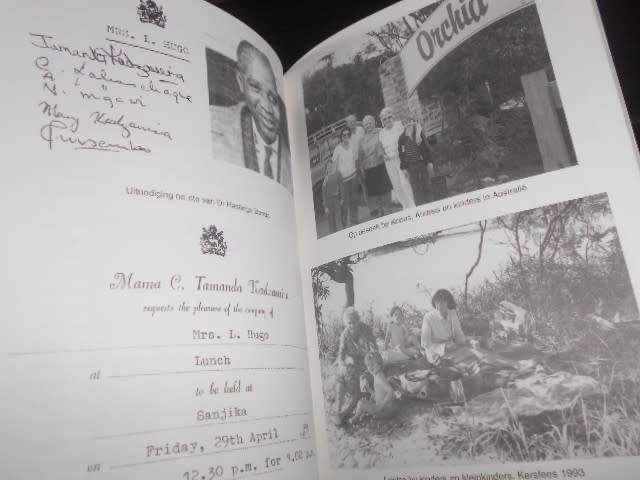 MRS. L. HUGO
Tamanda Kadzamira
Mary Kadzamira
Uitnodiging na ete van Dr Hastings Banda
Mama C. Tamanda Kadzamira
requests the pleasure of the company of
Mrs. L. Hugo
at Lunch
to be held at
Sanjika
on Friday, 29th April
12.30 p.m. for
Orchid
Op besoek by Anders en kinders in Australië
by kinders en kleinkinders, Kersfees 1993